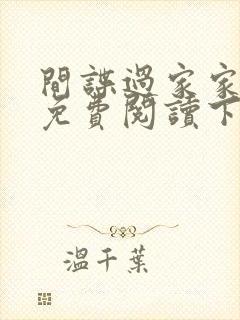 間諜過家家
免費閱讀下
溫千葉